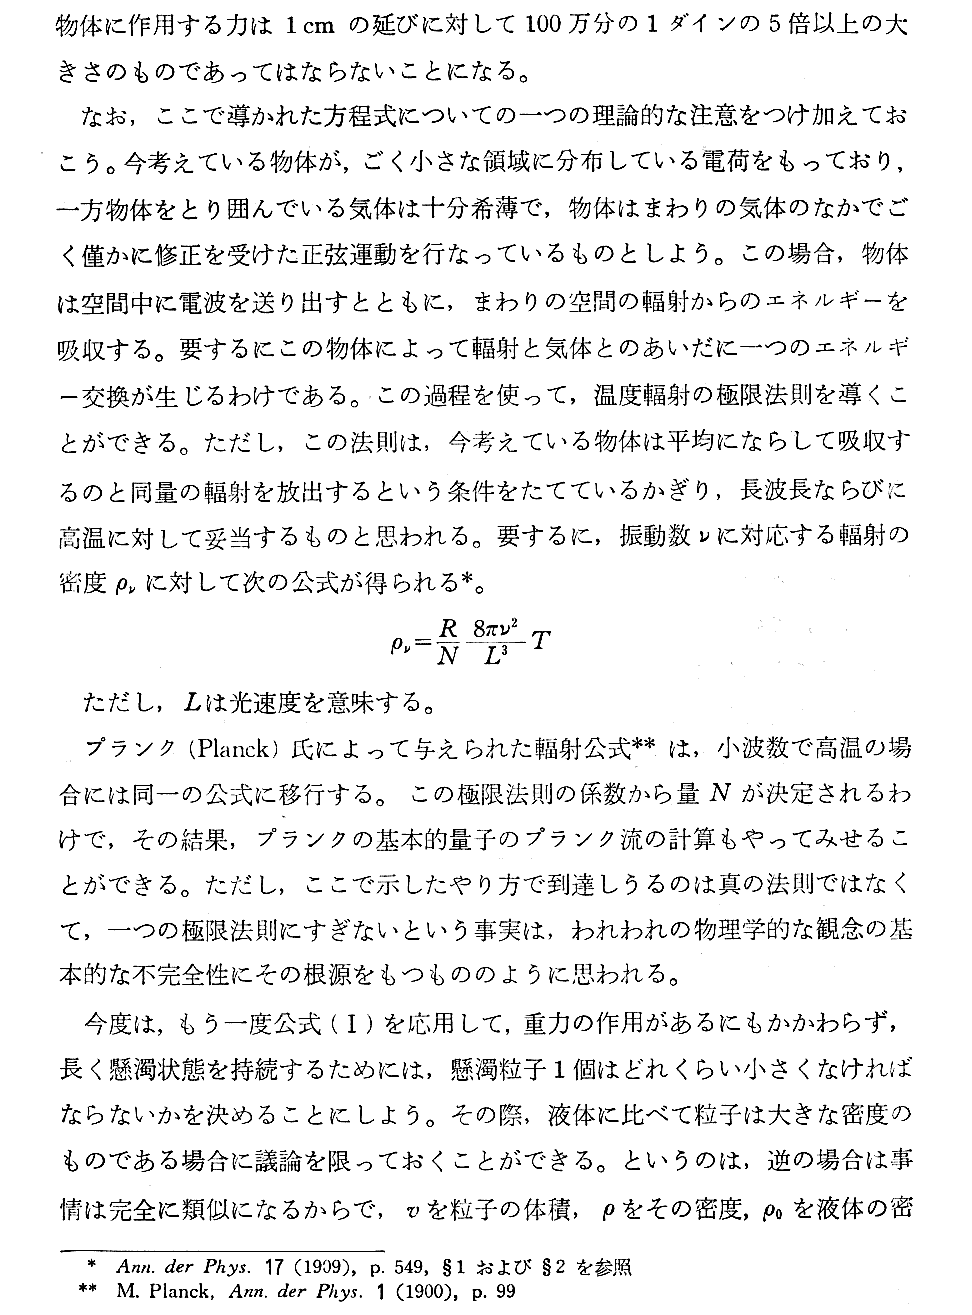 物体に作用する力は 1cm の延びに対して 100 万分の 1 ダインの 5 倍以上の大
きさのものであってはならないことになる。
なお，ここで導かれた方程式についての一つの理論的な注意をつけ加えてお
こう。今考えている物体が，ごく小さな領域に分布している電荷をもっており，
一方物体をとり囲んでいる気体は十分希薄で，物体はまわりの気体のなかでご
く僅かに修正を受けた正弦運動を行なっているものとしよう。この場合，物体
は空間中に電波を送り出すとともに，まわりの空間の輻射からのエネルギーを
吸収する。要するにこの物体によって輻射と気体とのあいだに一つのエネルギ
ー交換が生じるわけである。この過程を使って，温度輻射の極限法則を導くこ
とができる。ただし，この法則は，今考えている物体は平均にならして吸収す
るのと同量の輻射を放出するという条件をたてているかぎり，長波長ならびに
高温に対して妥当するものと思われる。要するに，振動数 ν に対応する輻射の
密度 ρν に対して次の公式が得られる*。
ρν = R/N 8πν²/L³ T
ただし，L は光速度を意味する。
プランク (Planck) 氏によって与えられた輻射公式** は，小波数で高温の場
合には同一の公式に移行する。この極限法則の係数から量 N が決定されるわ
けで，その結果，プランクの基本的量子のプランク流の計算もやってみせるこ
とができる。ただし，ここで示したやり方で到達しうるのは真の法則ではなく
て，一つの極限法則にすぎないという事実は，われわれの物理学的な観念の基
本的な不完全性にその根源をもつもののように思われる。
今度は，もう一度公式 ( I ) を応用して，重力の作用があるにもかかわらず，
長く懸濁状態を持続するためには，懸濁粒子 1 個はどれくらい小さくなければ
ならないかを決めることにしよう。その際，液体に比べて粒子は大きな密度の
ものである場合に議論を限っておくことができる。というのは，逆の場合は事
情は完全に類似になるからで，v を粒子の体積，ρ をその密度，ρ₀ を液体の密
* Ann. der Phys. 17 (1909), p. 549, §1 および §2 を参照
** M. Planck, Ann. der Phys. 1 (1900), p. 99